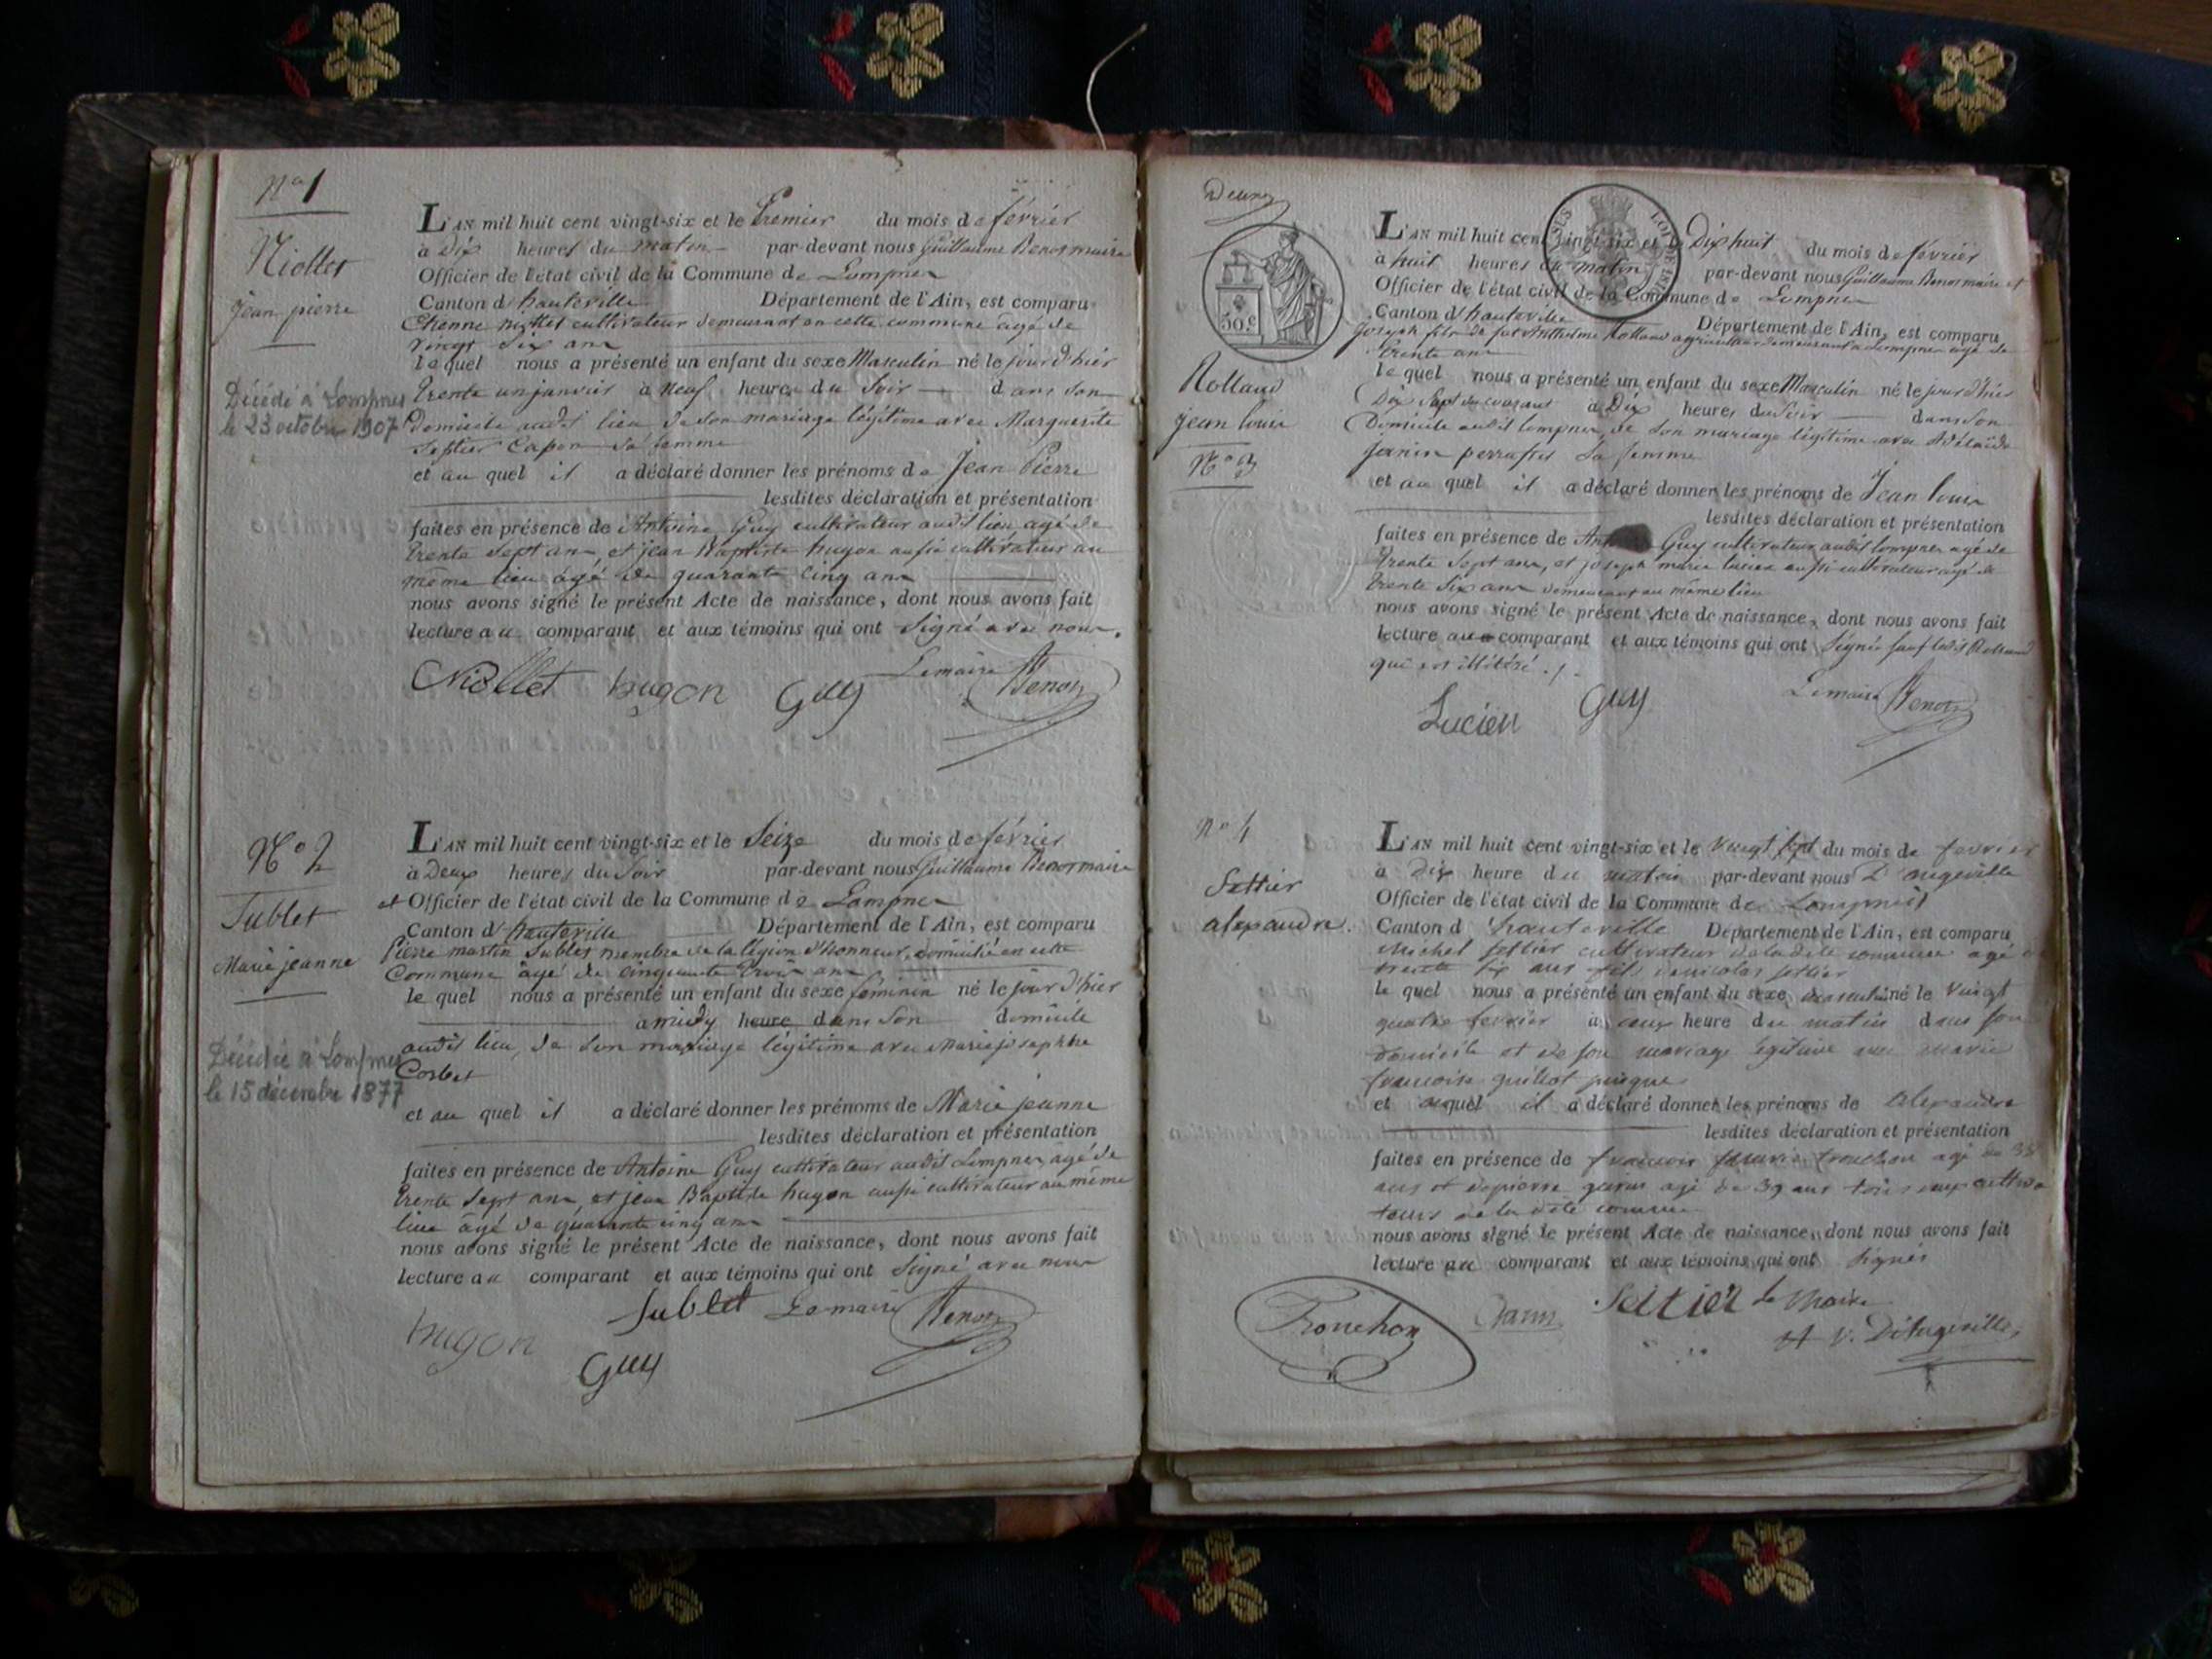 Nº 1
Niollet
jean pierre
Décédé à Lompnes
le 23 octobre 1907
L'AN mil huit cent vingt-six et le Premier du mois de février
à Dix heures du matin par-devant nous Guillaume Benoz maire
Officier de l'état civil de la Commune de Lompnes
Canton d'hauteville Département de l'Ain, est comparu
Etienne niollet cultivateur demeurant en cette commune âgé de
vingt six ans
le quel nous a présenté un enfant du sexe Masculin né le jour d'hier
trente un janvier à neuf heures du Soir dans son
Domicile audit lieu de son mariage légitime avec Marguerite
Seftier Capon sa femme
et au quel il a déclaré donner les prénoms de Jean Pierre
lesdites déclaration et présentation
faites en présence de Antoine Guy cultivateur audit lieu âgé de
trente sept ans et jean Baptiste hugon aussi cultivateur au
même lieu âgé de quarante cinq ans
nous avons signé le présent Acte de naissance, dont nous avons fait
lecture au comparant et aux témoins qui ont signé avec nous.
Niollet hugon Guy Lemaire Benoz
Nº 2
Sublet
Marie jeanne
Décédée à Lompnes
le 15 décembre 1877
L'AN mil huit cent vingt-six et le Seize du mois de février
à Deux heures du Soir par-devant nous Guillaume Benoz maire
et Officier de l'état civil de la Commune de Lompnes
Canton d'hauteville Département de l'Ain, est comparu
Pierre martin Sublet membre de la légion d'honneur, domicilié en cette
Commune âgé de cinquante trois ans
le quel nous a présenté un enfant du sexe féminin né le jour d'hier
a midy heure dans son domicile
audit lieu, de son mariage légitime avec Marie josephte
Corbet
et au quel il a déclaré donner les prénoms de Marie jeanne
lesdites déclaration et présentation
faites en présence de Antoine Guy cultivateur audit Lompnes, âgé de
trente sept ans, et jean Baptiste hugon aussi cultivateur au même
lieu âgé de quarante cinq ans
nous avons signé le présent Acte de naissance, dont nous avons fait
lecture au comparant et aux témoins qui ont signé avec nous
Sublet Lemaire Benoz
hugon
Guy
50 c
Rolland
jean louis
Nº 3
L'AN mil huit cent vingt-six et le Dix huit du mois de février
à huit heures du matin par-devant nous Guillaume Benoz maire et
Officier de l'état civil de la Commune de Lompnes
Canton d'hauteville Département de l'Ain, est comparu
Joseph fils de feu Anthelme Rolland agriculteur demeurant a Lompnes âgé de
trente ans
le quel nous a présenté un enfant du sexe Masculin né le jour d'hier
Dix Sept du courant à Dix heures du Soir dans son
Domicile audit lompnes, de son mariage légitime avec Adélaïde
janin perraffet sa femme
et au quel il a déclaré donner les prénoms de Jean louis
lesdites déclaration et présentation
faites en présence de Guy cultivateur audit lompnes âgé de
trente Sept ans, et joseph marie lucien aussi cultivateur âgé de
trente Six ans demeurant au même lieu
nous avons signé le présent Acte de naissance, dont nous avons fait
lecture au comparant et aux témoins qui ont signé sauf ledit Rolland
qui est illétéré ./.
Lucien Guy Lemaire Benoz
nº 4
Settier
alexandre
L'AN mil huit cent vingt-six et le vingt sept du mois de fevrier
à dix heure du matin par-devant nous D'angeville
Officier de l'état civil de la Commune de Lompnes
Canton d'hauteville Département de l'Ain, est comparu
Michel settier cultivateur de ladite commune agé de
trente six ans fils de nicolas settier
le quel nous a présenté un enfant du sexe masculin né le vingt
quatre fevrier à deux heure du matin dans son
domicile et de son mariage legitime avec marie
francoise guillot
et auquel il a déclaré donner les prénoms de alexandre
lesdites déclaration et présentation
faites en présence de francois trouchon agé de 35
ans et de pierre agé de 39 ans tous deux cultiva
teurs de la dite commune
nous avons signé le présent Acte de naissance, dont nous avons fait
lecture au comparant et aux témoins qui ont signés
Trouchon Settier le Maire
D'Angeville